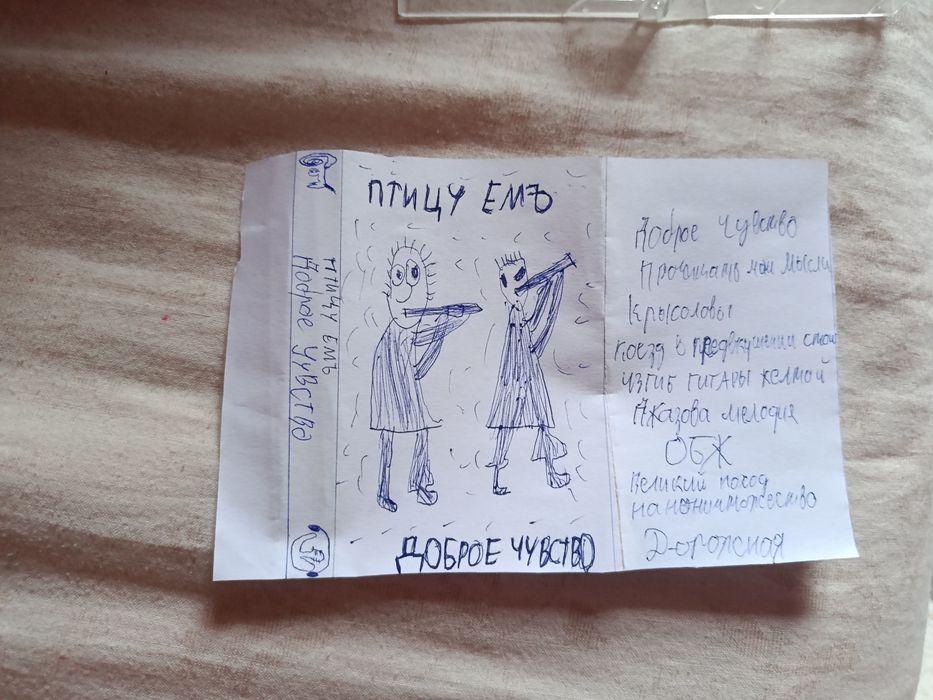 ПТИЦУ ЕМЪ
ДОБРОЕ ЧУВСТВО
ПТИЦУ ЕМЪ
Доброе чувство
Доброе чувство
Прочищать мои мысли
Крысоловы
поезд в предвкушении
ИЗГИБ ГИТАРЫ ЖЕЛТОЙ
мелодия
ОБЖ
Великий поход
на
Дорожная